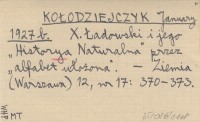 KOŁODZIEJCZYK January
1927b. X. Ładowski i jego
„Historya Naturalna" przez
„alfabet ułożona". — Ziemia
(Warszawa) 12, nr 17: 370-373.
MT